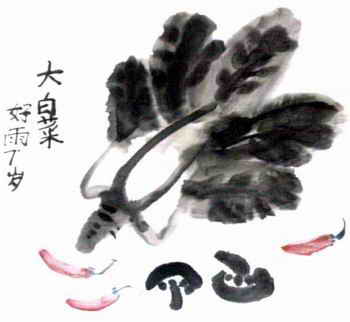 大白菜
好雨7岁